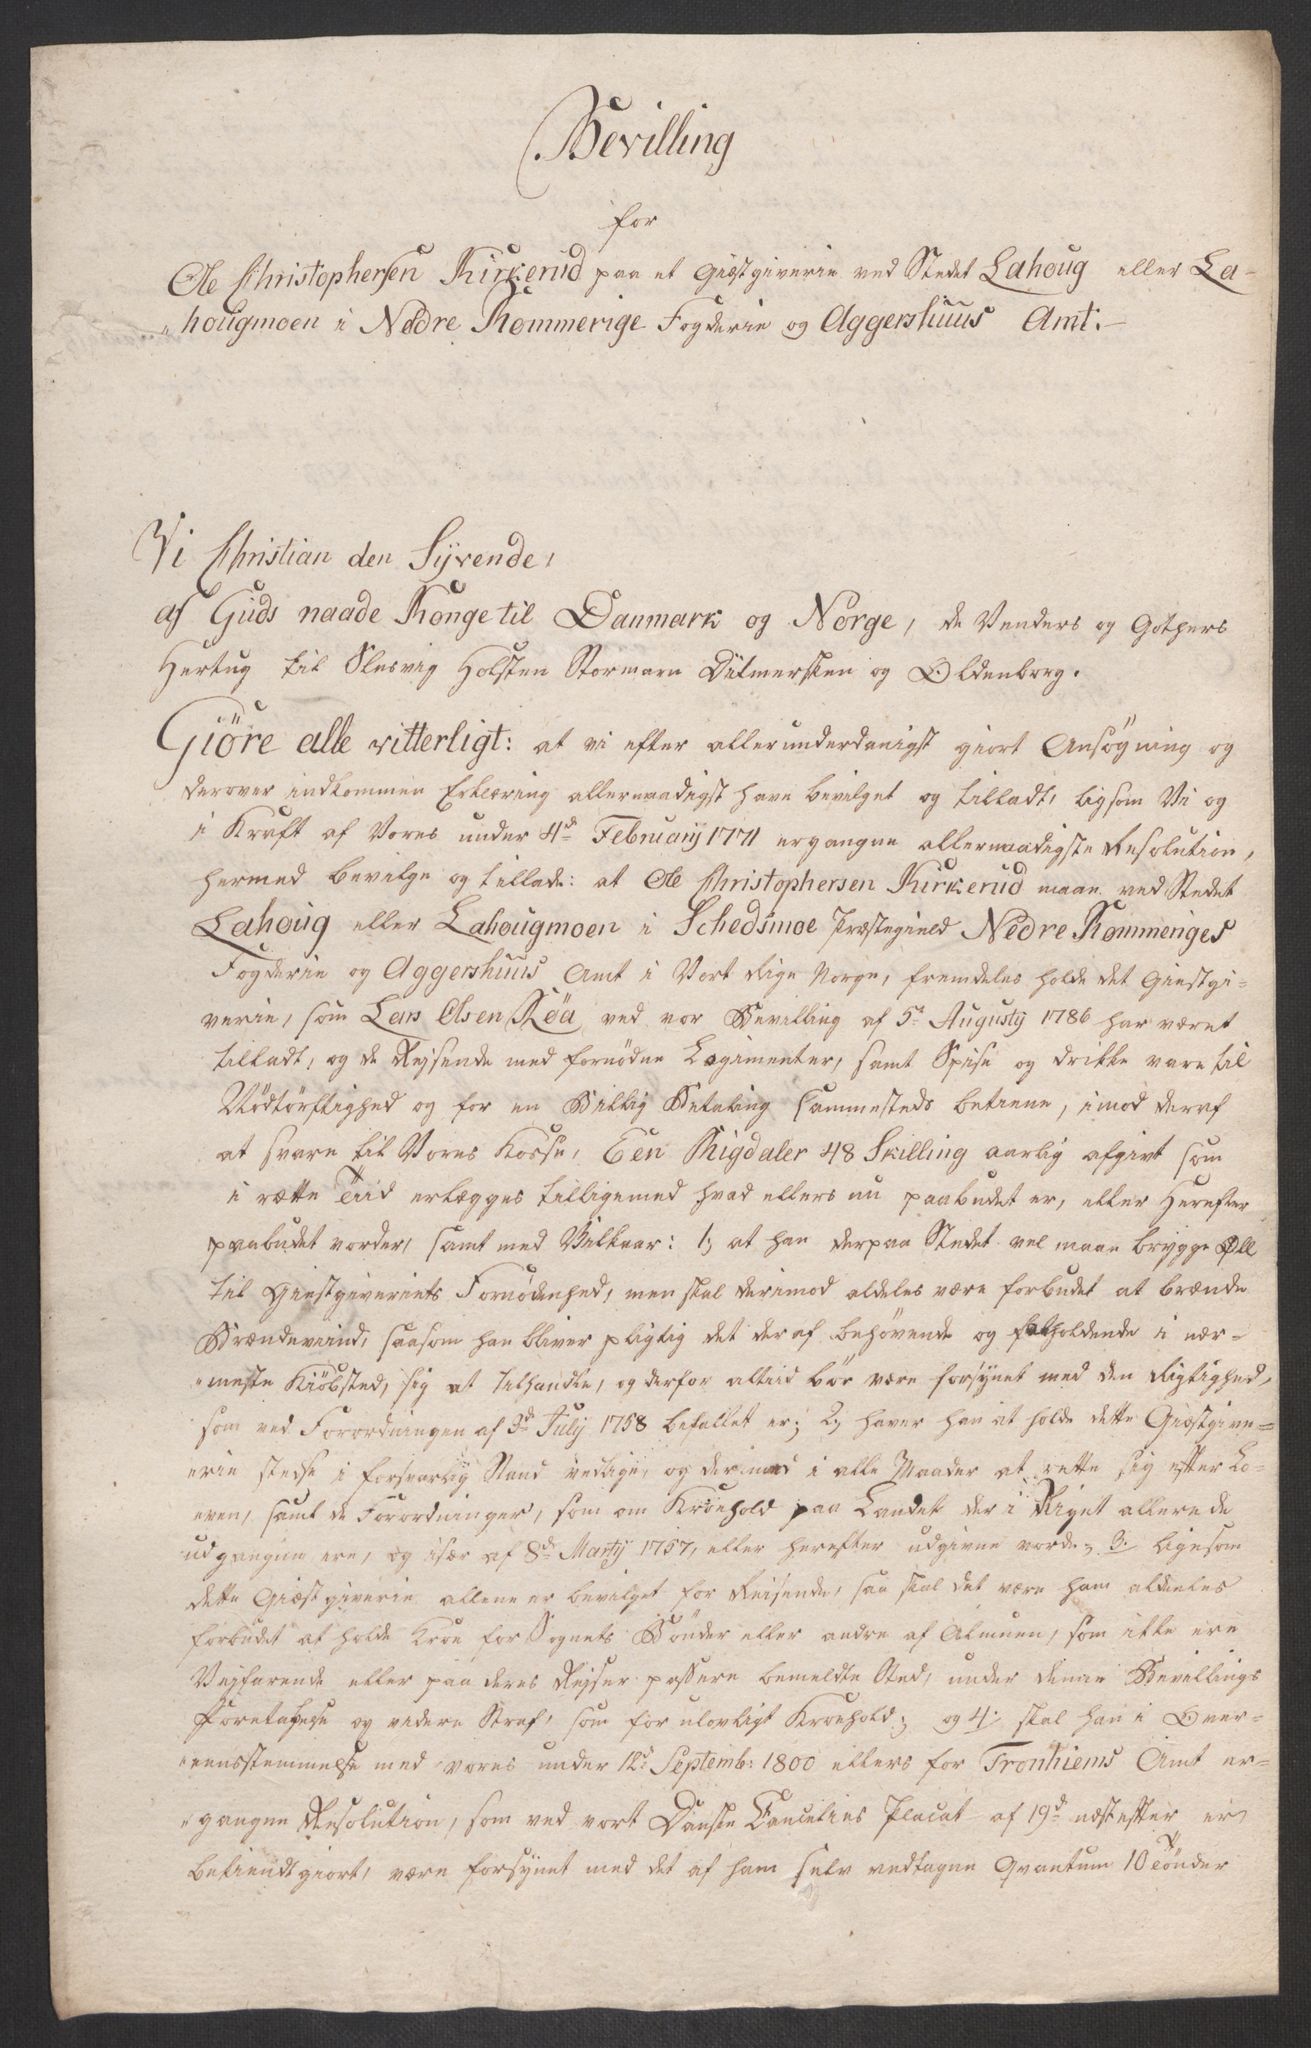 Bevilling
for
Ole Christophersen Kirkerud paa et Giæstgiverie ved Stedet Lahoug eller La-
"hougmoen i Nedre Rommerige Fogderie og Aggershuus Amt.-
Vi Christian den Syvende,
af Guds naade Konge til Danmark og Norge, de Venders og Gothers
Hertug til Slesvig Holsten Stormarn Ditmersken og Oldenborg.
Giöre alle vitterligt: at vi efter allerunderdanigst giort Ansøgning og
derover indkommen Erklæring allernaadigst have bevilget og tilladt, ligsom Vi og
i Kraft af Vores under 4d Februarij 1771 ergangne allernaadigste Resolution,
hermed bevilge og tillade: at Ole Christophersen Kirkerud maae ved Stedet
Lahoug eller Lahougmoen i Schedsmoe Præstegield Nedre Rommeriges
Fogderie og Aggershuus Amt i Vort Rige Norge, fremdeles holde det Giestgi-
verie, som Lars Olsen Röa ved vor Bevilling af 5t Augusty 1786 har været
tilladt, og de Rejsende med fornödne Logimenter, samt Spise og drikke vare til
Nödtörftighed og for en Billig Betaling sammesteds betiene, imod deraf
at svare til Vores Kasse, Een Rigdaler 48 Skilling aarlig afgivt som
i rætte Tiid erlægges tilligemed hvad ellers nu paabudet er, eller Herefter
paabudet vorder, samt med Vilkaar: 1, at han derpaa Stedet vel maae brygge Öll
til Giestgiveriets Fornödenhed, men skal derimod aldeles være forbudet at brænde
Brændeviind, saasom han bliver pligtig det deraf behøvende og falholdende i nær-
"meste Kiöbsted, sig at tilhandle, og derfor altiid bör være forsynet med den Rigtighed,
som ved Forordningen af 3d July 1758 befallet er; 2, haver han at holde dette Giæstgive-
erie stedse i forsvarlig Stand vedlige, og derimod i alle Maader at rette sig efter Lo-
even, samt de Forordninger, som om Kroehold paa Landet der i Riget allerede
udgangne ere, og især af 8d Marty 1757, eller herefter udgivne vorde; 3. ligesom
dette Giæstgiverie allene er bevilget for Reisende, saa skal det være ham aldeeles
forbudet at holde Kroe for Sognets Bönder eller andre af Almuen, som ikke ere
Vejfarende eller paa deres Rejser passere bemeldte Sted, under denne Bevillings
Fortabelse og videre Straf, som for ulovligt Kroehold; og 4. skal han i Over-
"eensstemmelse med vores under 12t Septemb: 1800 ellers for Tronhiems Amt er-
"gangne Resolution, som ved vort Danske Cancelies Placat af 19d næstefter er
bekiendtgiort, være forsynet med det af ham selv vedtagne Qvantum 10 Tönder